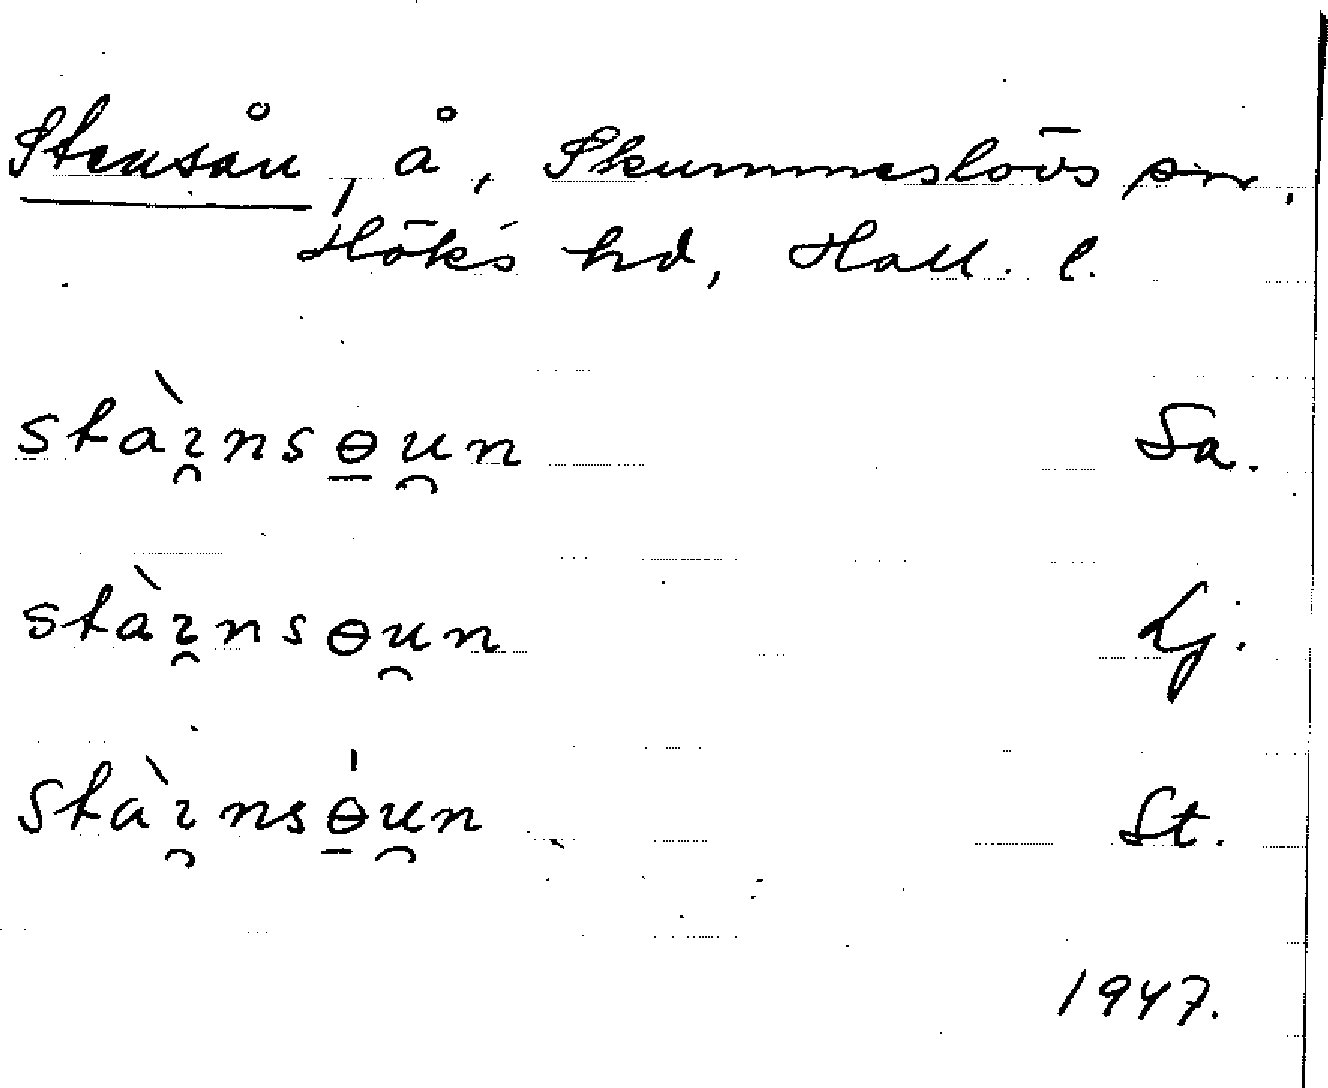 Stensån, å, Skummeslövs sn,
Höks hd, Hall. l.
stàı̯nsɵ̱u̯n Sa.
stàı̯nsɵu̯n Lj.
stàı̯nsɵ̱́u̯n St.
1947.